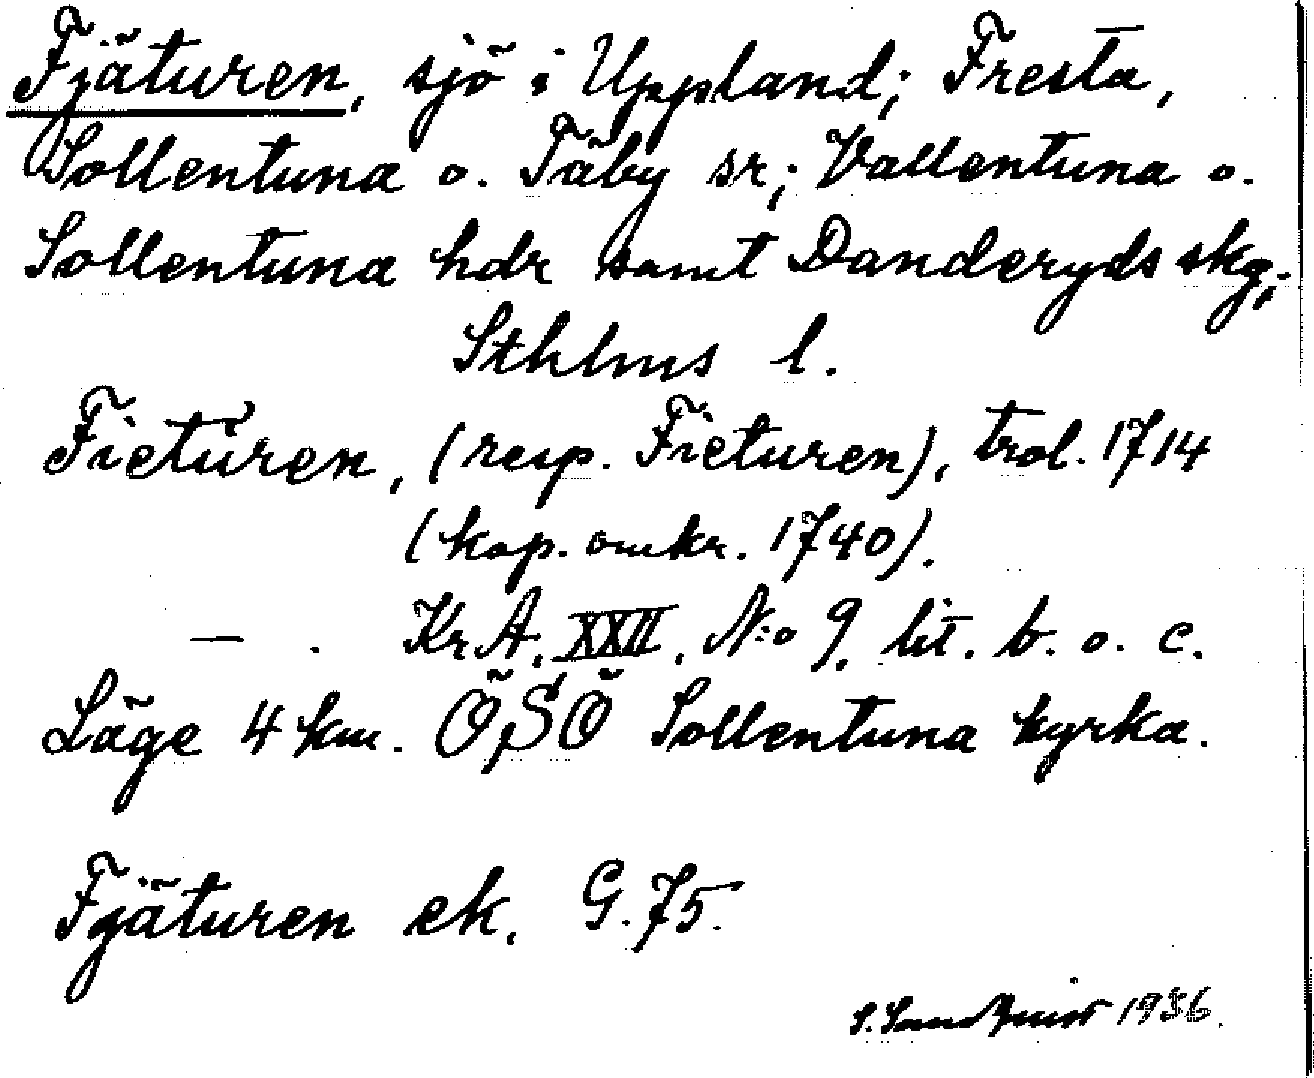 Fjäturen, sjö i Uppland; Fresta,
Sollentuna o. Täby sr; Vallentuna o.
Sollentuna hdr samt Danderyds skg;
Sthlms l.
Fieturen, (resp. Fieturen), trol. 1714
(kop. omkr. 1740).
— . KrA. XXII. N:o 9. lit. b. o. c.
Läge 4 km. ÖSÖ Sollentuna kyrka.
Fjäturen ek. G. 75.
S. Sandquist 1936.